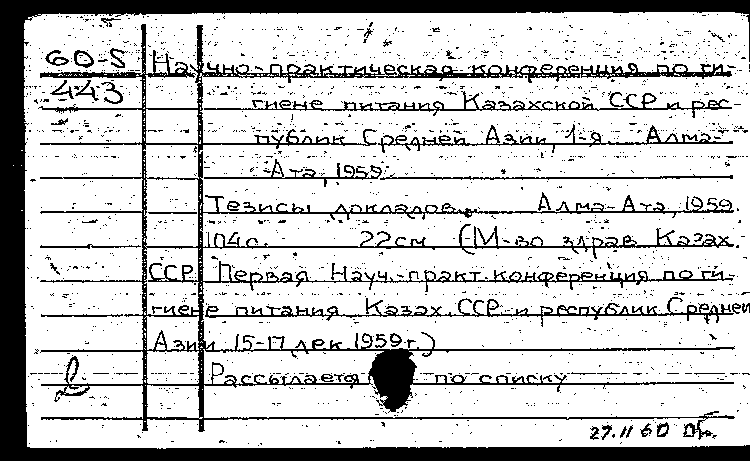 60-5 Научно-практическая конференция по ги-
443 гиене питания Казахской ССР и рес-
публик Средней Азии, 1-я. Алма-
-Ата, 1959.
Тезисы докладов. Алма-Ата, 1959.
104 с. 22 см. (М-во здрав. Казах.
ССР. Первая Науч.-практ. конференция по ги-
гиене питания Казах. ССР и республик Средней
Азии 15-17 дек. 1959 г.)
Рассылается по списку
27.11 60